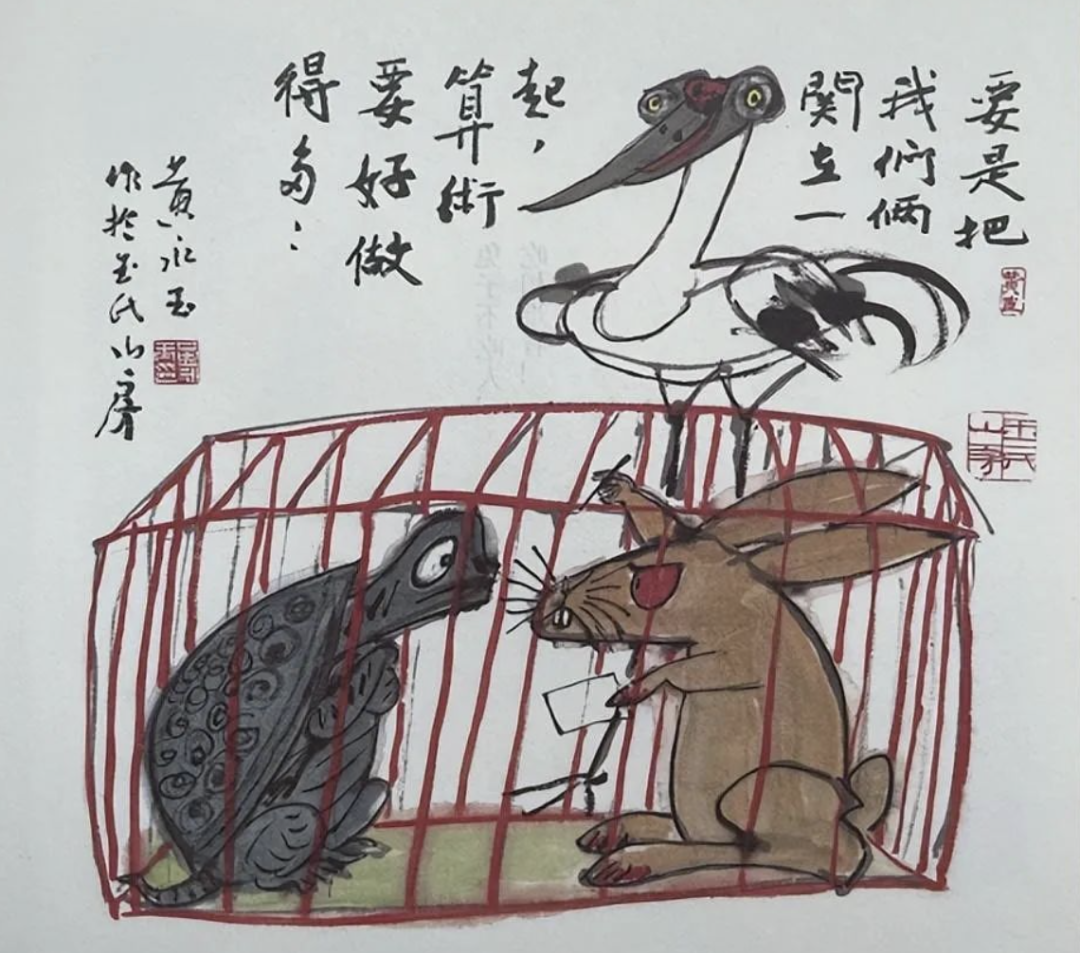 要是把
我們倆
關在一
起，
算術
要好做
得多：
黃永玉
作於玉氏山房
玉氏山房